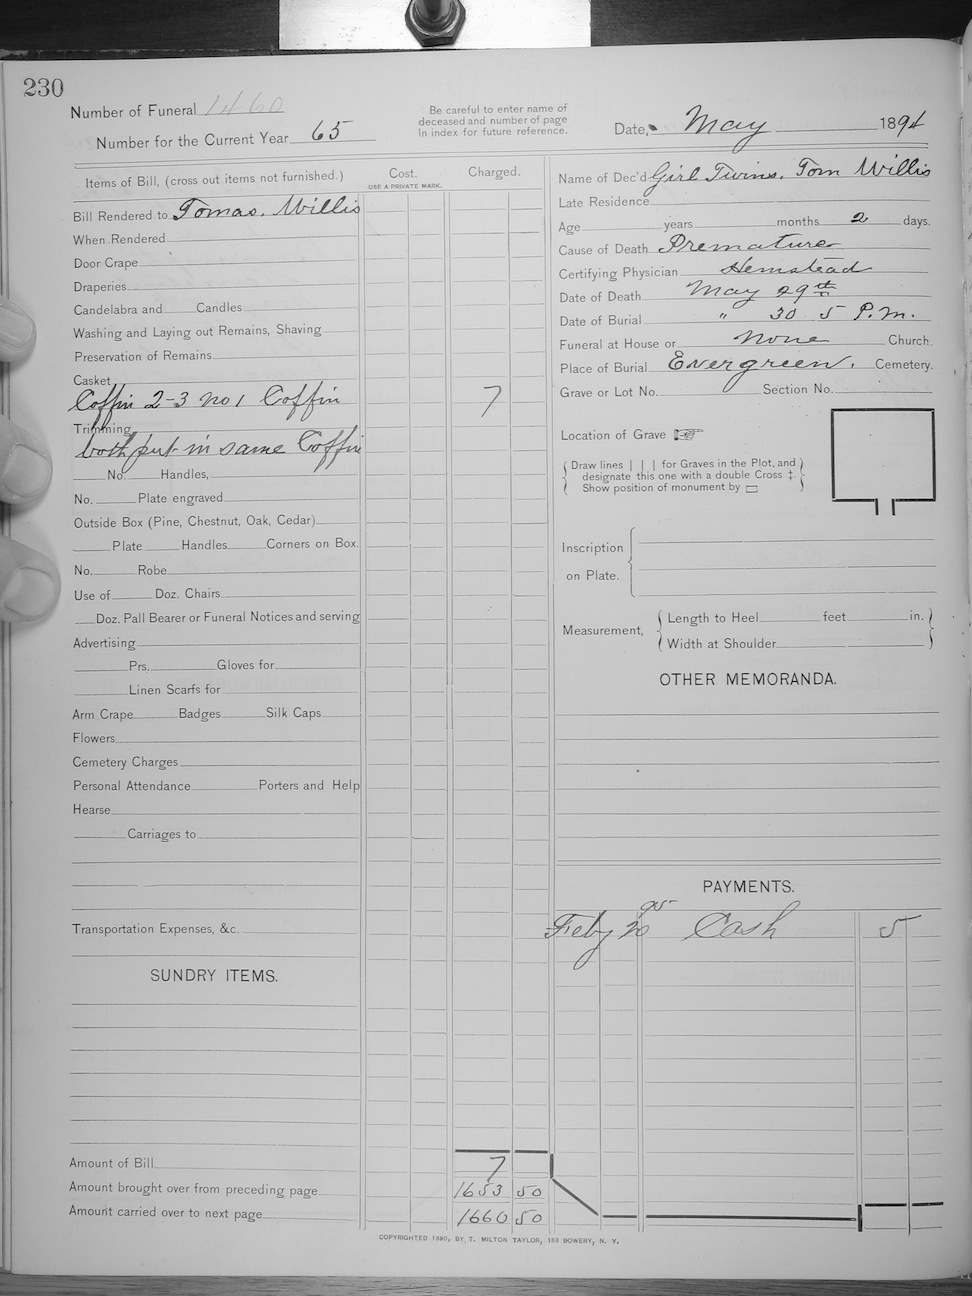 230
Number of Funeral 1460
Be careful to enter name of
deceased and number of page
in index for future reference.
Number for the Current Year 65
Date, May 1894
Items of Bill, (cross out items not furnished.)
Cost.
USE A PRIVATE MARK.
Charged.
Bill Rendered to Tomas. Willis
When Rendered
Door Crape
Draperies
Candelabra and Candles
Washing and Laying out Remains, Shaving
Preservation of Remains
Casket
Coffin 2-3 no 1 Coffin 7
Trimming
both put in same Coffin
No. Handles,
No. Plate engraved
Outside Box (Pine, Chestnut, Oak, Cedar)
Plate Handles Corners on Box.
No. Robe
Use of Doz. Chairs
Doz. Pall Bearer or Funeral Notices and serving
Advertising
Prs. Gloves for
Linen Scarfs for
Arm Crape Badges Silk Caps
Flowers
Cemetery Charges
Personal Attendance Porters and Help
Hearse
Carriages to
Transportation Expenses, &c.
SUNDRY ITEMS.
Amount of Bill 7
Amount brought over from preceding page 1653 50
Amount carried over to next page 1660 50
Name of Dec'd Girl Twins. Tom Willis
Late Residence
Age years months 2 days.
Cause of Death Premature
Certifying Physician Hemstead
Date of Death May 29th
Date of Burial " 30 5 P.M.
Funeral at House or none Church.
Place of Burial Evergreen. Cemetery.
Grave or Lot No. Section No.
Location of Grave ☞
Draw lines | | | for Graves in the Plot, and
designate this one with a double Cross ‡.
Show position of monument by ▭
Inscription
on Plate.
Measurement,
Length to Heel feet in.
Width at Shoulder
OTHER MEMORANDA.
PAYMENTS.
95
Feby 20 Cash 5
COPYRIGHTED 1890, BY T. MILTON TAYLOR, 163 BOWERY, N. Y.